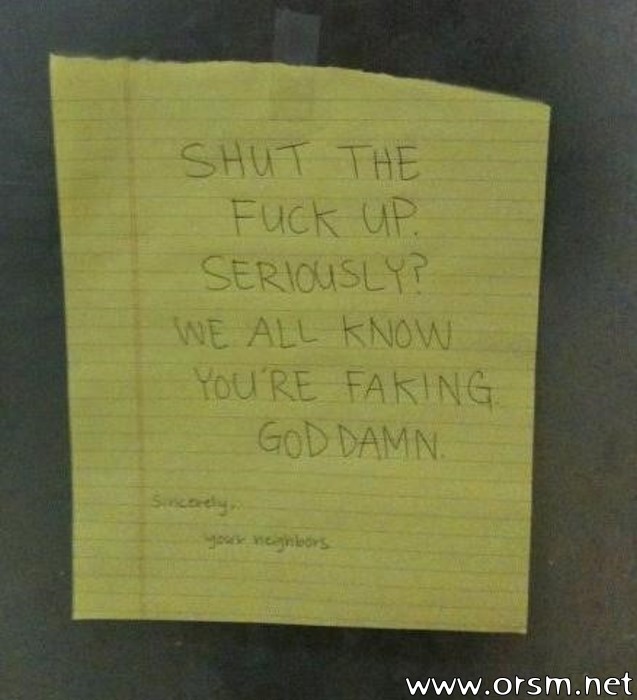 SHUT THE
FUCK UP.
SERIOUSLY?
WE ALL KNOW
YOU'RE FAKING.
GOD DAMN.
Sincerely,
your neighbors
www.orsm.net